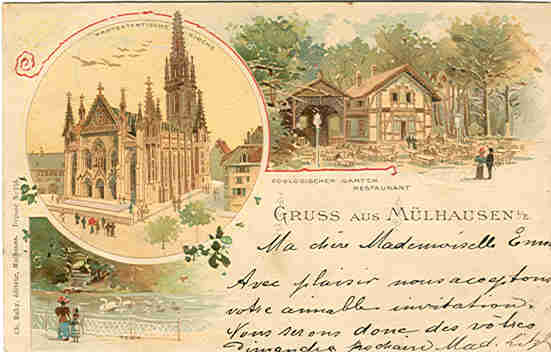 PROTESTANTISCHE KIRCHE
ZOOLOGISCHER GARTEN
RESTAURANT
GRUSS AUS MÜLHAUSEN i/E.
Ma chère Mademoiselle Emm
Avec plaisir nous acceptons
votre aimable invitation.
Nous serons donc des vôtres
Dimanche prochaine Mad.
Ch. Bahy, éditeur, Mulhouse.